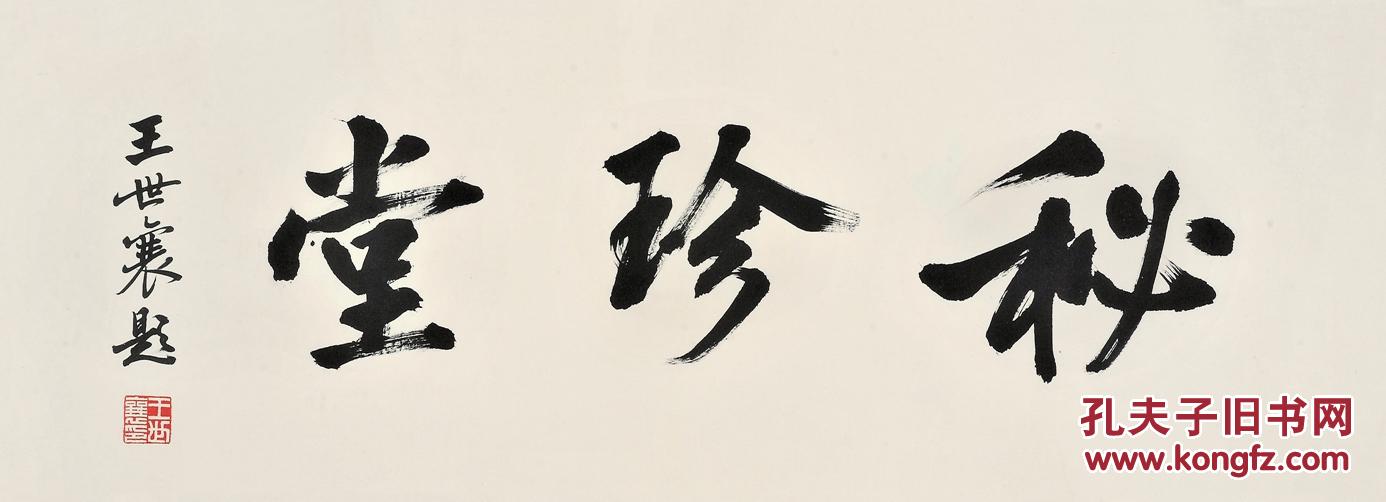 秘珍堂
王世襄题
王世襄印
孔夫子旧书网
www.kongfz.com